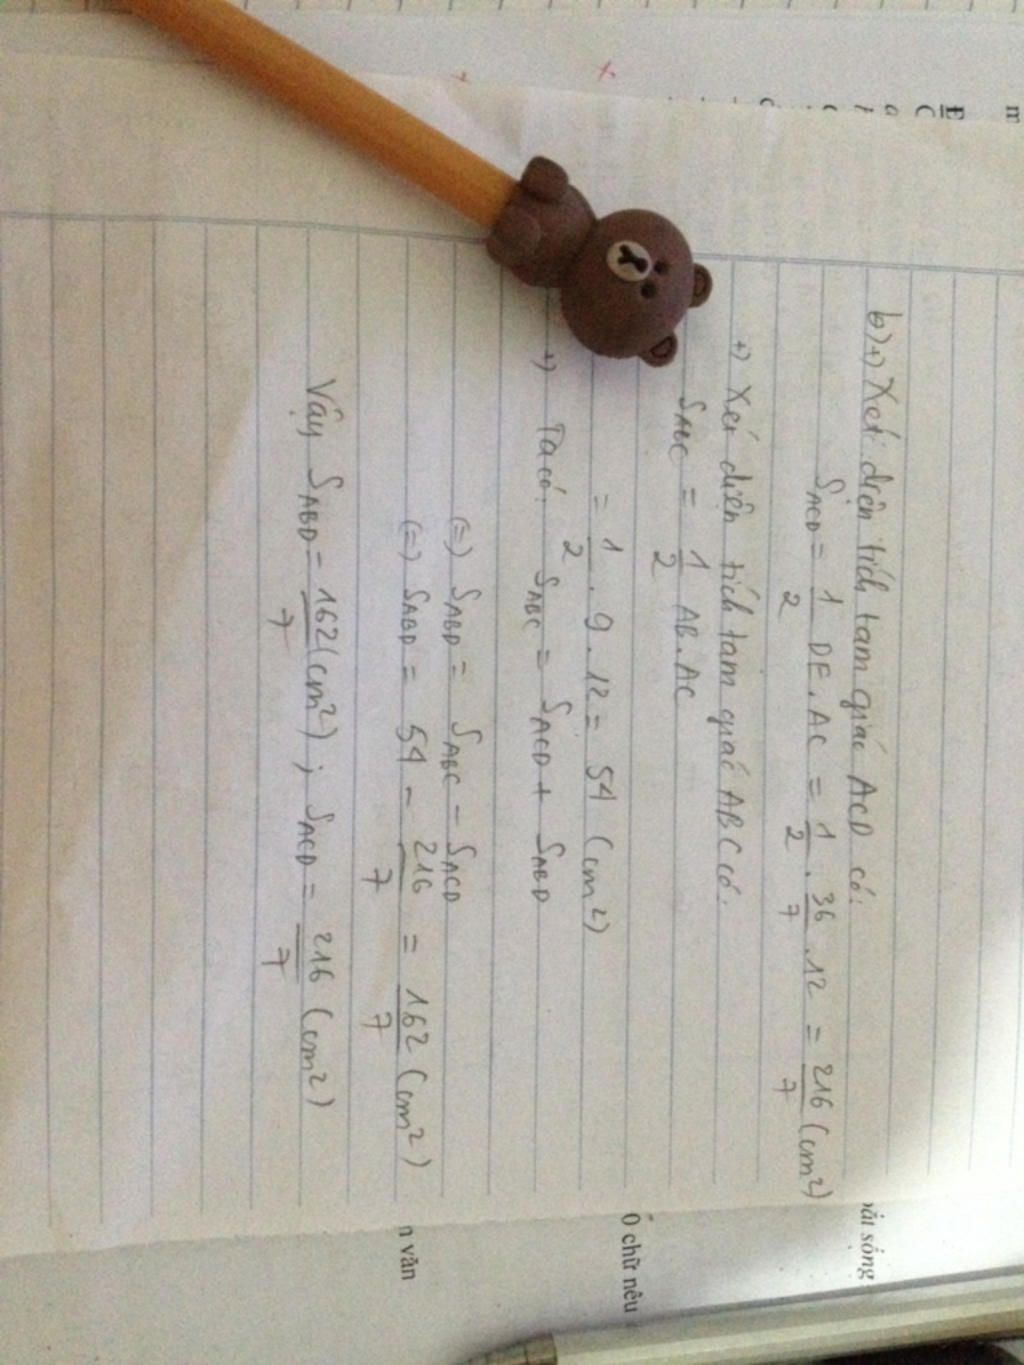 b) +) Xét diện tích tam giác ACD có:
S_ACD = 1/2 DE.AC = 1/2 . 36/7 . 12 = 216/7 (cm²)
+) Xét diện tích tam giác ABC có:
S_ABC = 1/2 AB.AC
= 1/2 . 9 . 12 = 54 (cm²)
+) Ta có: S_ABC = S_ACD + S_ABD
(=) S_ABD = S_ABC - S_ACD
(=) S_ABD = 54 - 216/7 = 162/7 (cm²)
Vậy S_ABD = 162/7 (cm²) ; S_ACD = 216/7 (cm²)
sống
ố chữ nêu
n văn